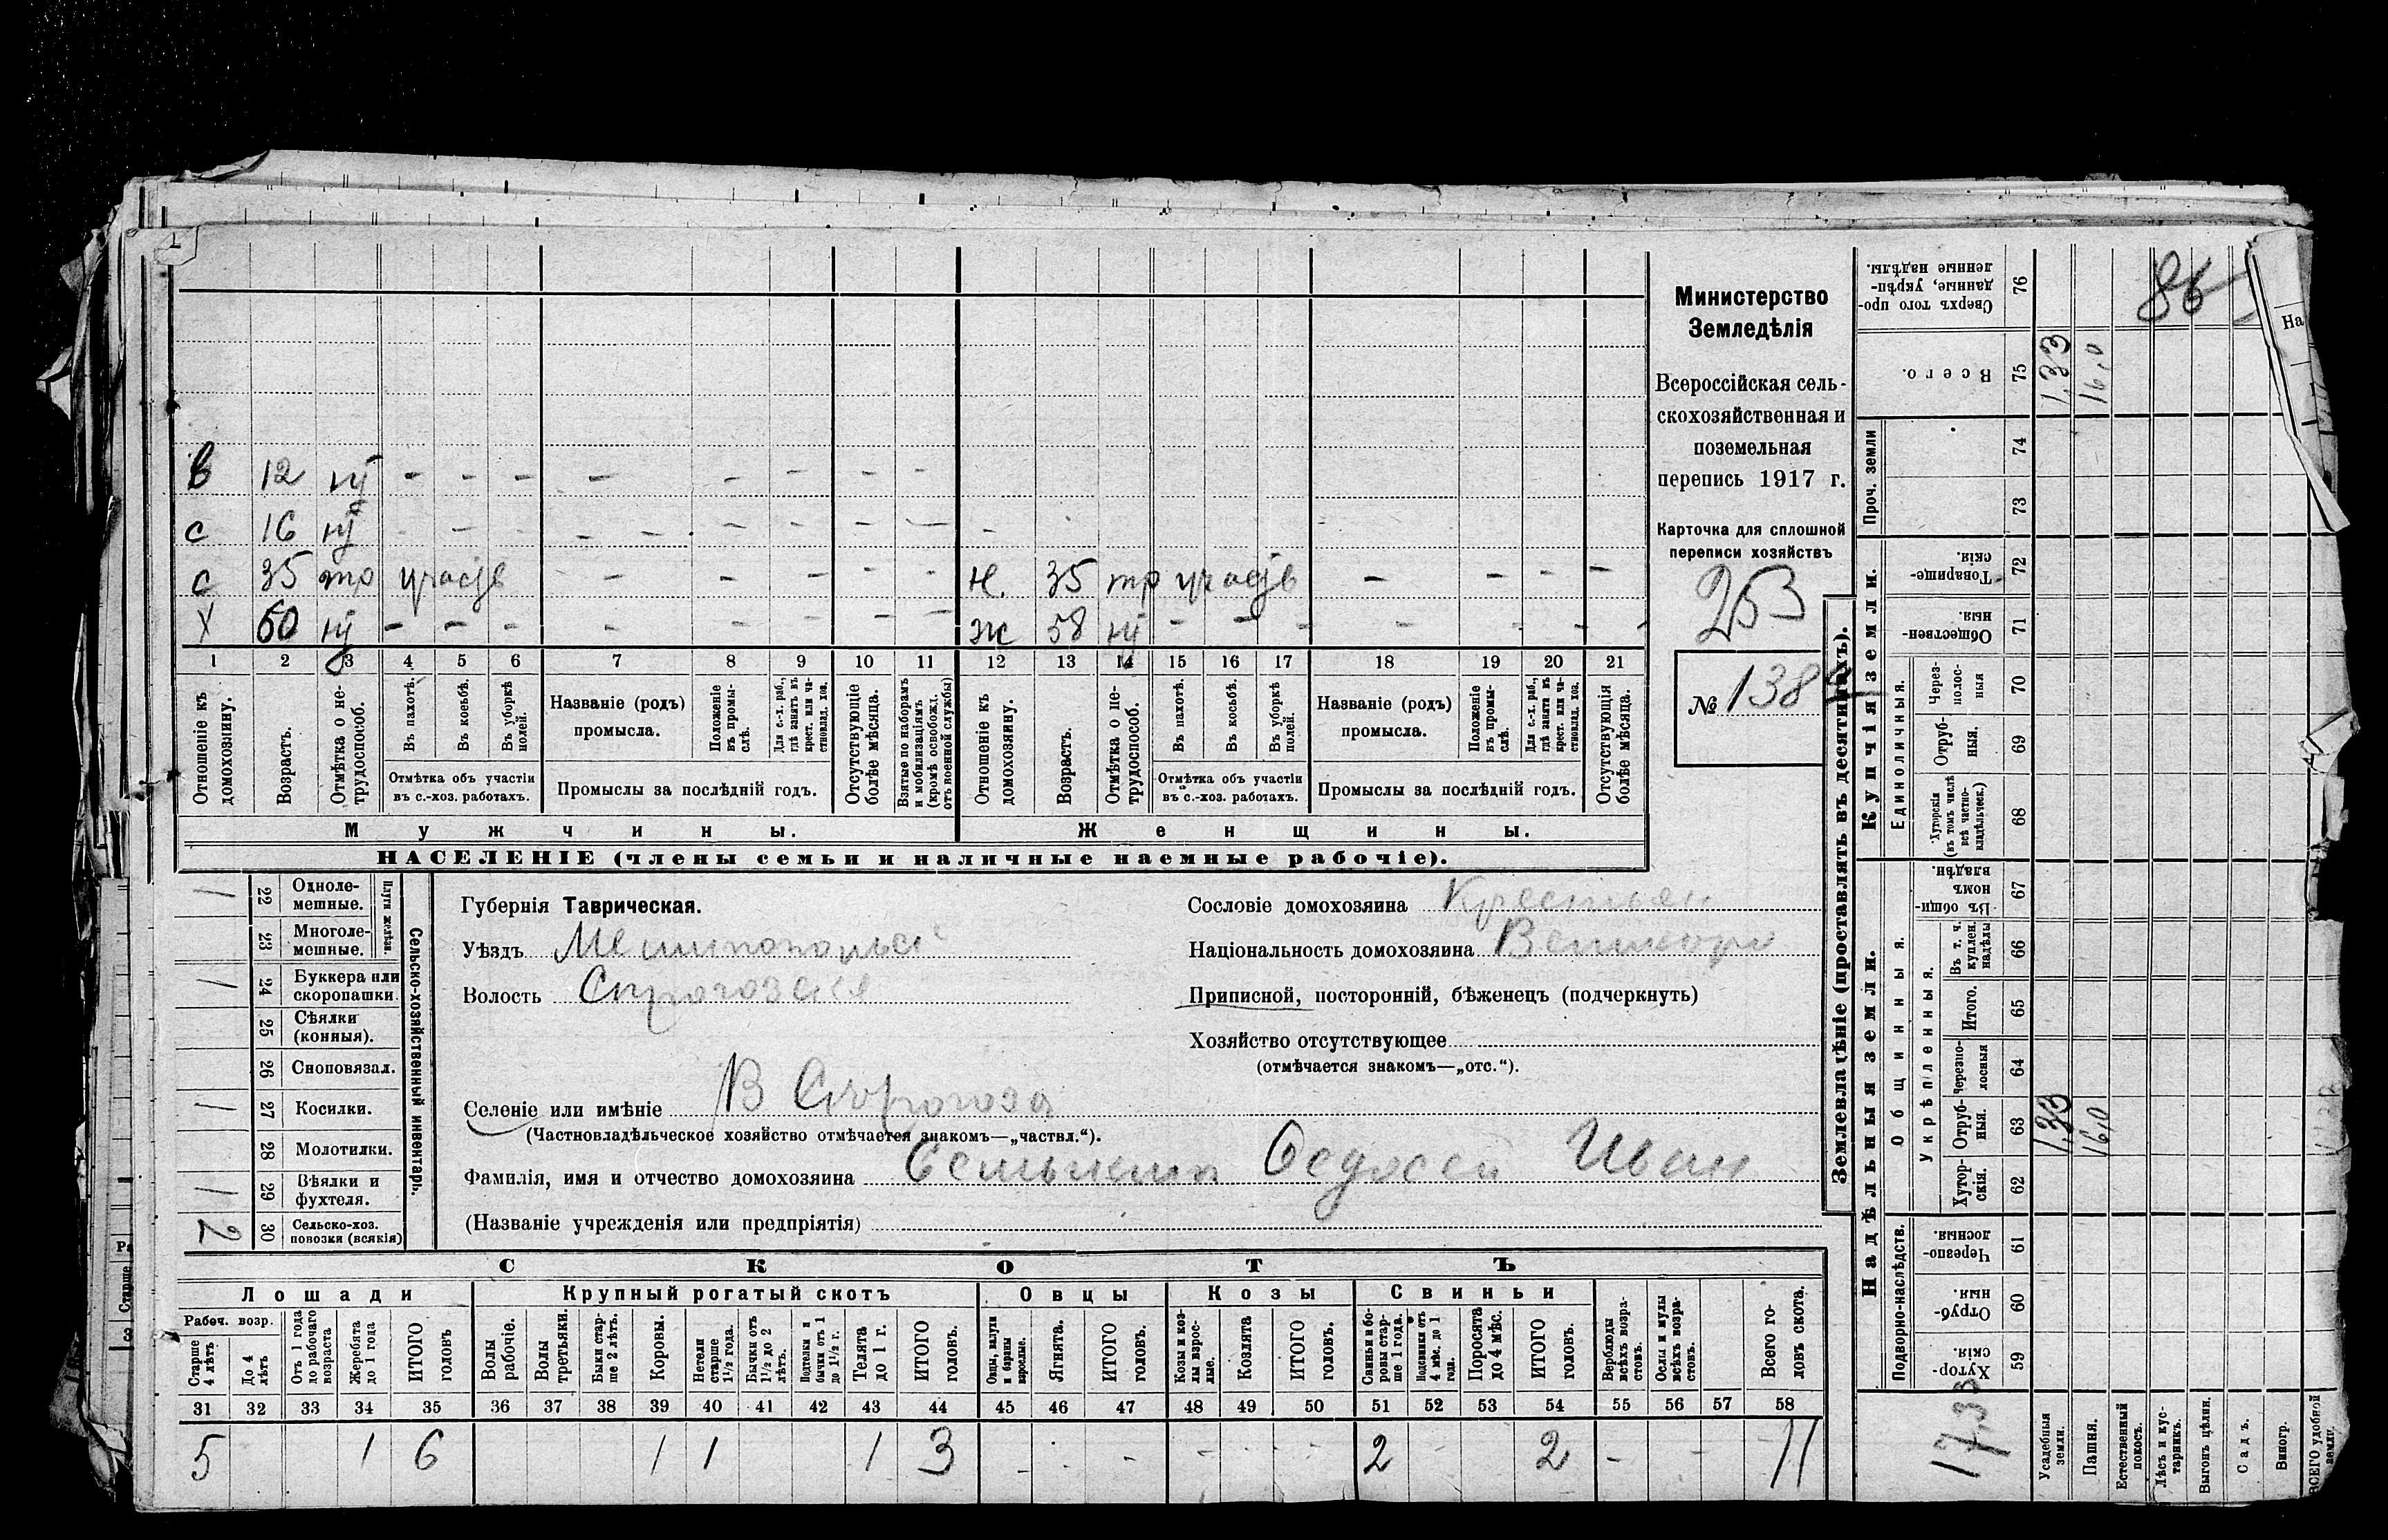 в 12 – – – – – – – –
с 16 – – – – – – –
с 35 тр участв – – – – – н. 35 тр участв – – – –
х 60 – – – – – – – – ж 58 – – – – – – –
1 2 3 4 5 6 7 8 9 10 11 12 13 14 15 16 17 18 19 20 21
Отношеніе къ домохозяину.
Возрастъ.
Отмѣтка о не-трудоспособ.
Въ пахотѣ.
Въ косьбѣ.
Въ уборкѣ полей.
Отмѣтка объ участіи въ с.-хоз. работахъ.
Названіе (родъ) промысла.
Положеніе въ промы-слѣ.
Для с.-х. раб., гдѣ занятъ въ крест. или ча-стновлад. хоз.
Промыслы за послѣдній годъ.
Отсутствующіе болѣе мѣсяца.
Взятые по наборамъ и мобилизаціямъ (кромѣ освобожд. отъ военной службы)
Отношеніе къ домохозяину.
Возрастъ.
Отмѣтка о не-трудоспособ.
Въ пахотѣ.
Въ косьбѣ.
Въ уборкѣ полей.
Отмѣтка объ участіи въ с.-хоз. работахъ.
Названіе (родъ) промысла.
Положеніе въ промы-слѣ.
Для с.-х. раб., гдѣ занята въ крест. или ча-стновлад. хоз.
Промыслы за послѣдній годъ.
Отсутствующія болѣе мѣсяца.
Мужчины. Женщины.
НАСЕЛЕНІЕ (члены семьи и наличные наемные рабочіе).
Министерство
Земледѣлія
Всероссійская сель-
скохозяйственная и
поземельная
перепись 1917 г.
Карточка для сплошной
переписи хозяйствъ
253
№ 138
Сельско-хозяйственный инвентарь.
Плуги желѣзн.
1 22 Одноле-мешные.
23 Многоле-мешные.
1 24 Буккера или скоропашки.
25 Сѣялки (конныя).
26 Сноповязал.
1 27 Косилки.
28 Молотилки.
1 29 Вѣялки и фухтеля.
2 30 Сельско-хоз. повозки (всякія)
Губернія Таврическая.
Уѣздъ Мелитопольс
Волость Строгозская
Селеніе или имѣніе В Строгоза
(Частновладѣльческое хозяйство отмѣчается знакомъ—„частвл.“).
Фамилія, имя и отчество домохозяина Федосей Иван
(Названіе учрежденія или предпріятія)
Сословіе домохозяина Крестьян
Національность домохозяина Великор
Приписной, посторонній, бѣженецъ (подчеркнуть)
Хозяйство отсутствующее
(отмѣчается знакомъ—„отс.“).
СКОТЪ
Лошади Крупный рогатый скотъ Овцы Козы Свиньи
Рабоч. возр.
Старше 4 лѣтъ
До 4 лѣтъ
Отъ 1 года до рабочаго возраста
Жеребята до 1 года
ИТОГО головъ
Волы рабочіе.
Волы третьяки.
Быки стар-ше 2 лѣтъ.
Коровы.
Нетели старше 1½ года.
Бычки отъ 1½ до 2 лѣтъ.
Подтелки и бычки отъ 1 до 1½ г.
Телята до 1 г.
ИТОГО головъ.
Овцы, валухи и бараны взрослые.
Ягнята.
ИТОГО головъ.
Козы и коз-лы взрос-лые.
Козлята
ИТОГО головъ.
Свиньи и бо-ровы стар-ше 1 года.
Подсвинки отъ 4 мѣс. до 1 года.
Поросята до 4 мѣс.
ИТОГО головъ.
Верблюды всѣхъ возра-стовъ.
Ослы и мулы всѣхъ возра-стовъ.
Всего го-ловъ скота.
31 32 33 34 35 36 37 38 39 40 41 42 43 44 45 46 47 48 49 50 51 52 53 54 55 56 57 58
5 1 6 1 1 1 3 2 2 11
Землевладѣніе (проставлять въ десятинахъ).
Надѣльныя земли. Купчія земли. Проч. земли
Подворно-наслѣдств.
Общинныя.
Укрѣпленныя.
Единоличныя.
59 Хутор-скія.
60 Отруб-ныя.
61 Черезпо-лосныя.
62 Хутор-скія.
63 Отруб-ныя. 1,33 16,0
64 Черезпо-лосныя
65 Итого.
66 Въ т. ч. куплен. надѣлы
67 Въ общи-номъ владѣн.
68 Хуторскія (въ томъ числѣ всѣ частно-владѣльческ.)
69 Отруб-ныя.
70 Через-полос-ныя
71 Обществен-ныя
72 Товарище-скія.
73
74
75 Всего. 1,33 16,0
76 Сверхъ того про-данные, укрѣп-ленные надѣлы.
86
17,33
Усадебныя земли.
Пашня.
Естественный покосъ.
Лѣсъ и кус-тарникъ.
Выгонъ цѣлин.
Садъ.
Виногр.
ВСЕГО удобной земли.
На